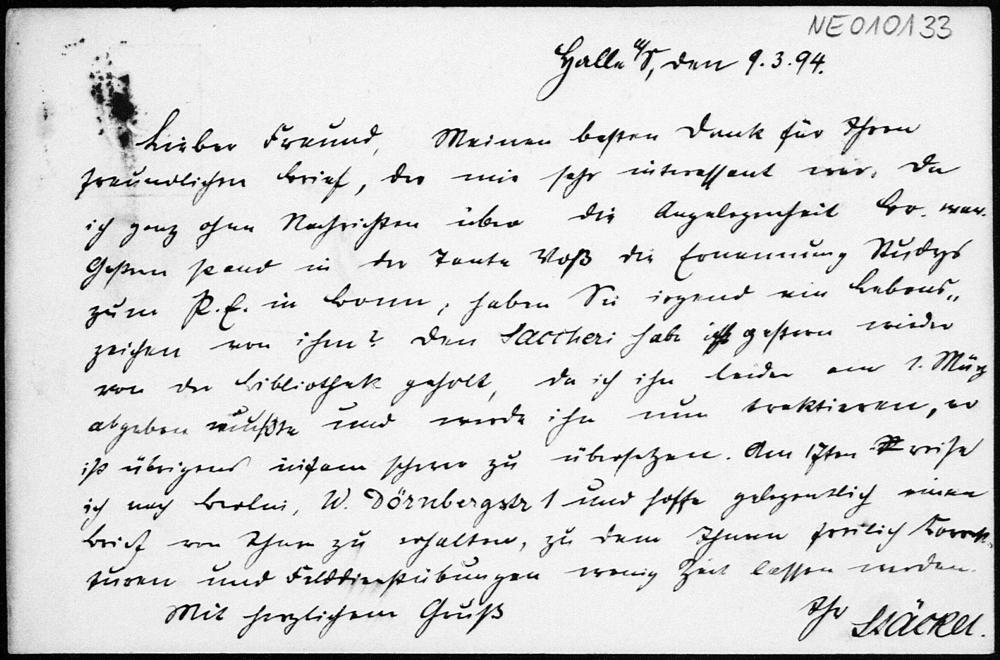 NE010133
Halle a/S, den 9.3.94.
Lieber Freund, Meinen besten Dank für Ihren
freundlichen Brief, der mir sehr interessant war, da
ich ganz ohne Nachrichten über die Angelegenheit Br. war.
Gestern stand in der Tante Voß die Ernennung Studys
zum P.E. in Bonn; haben Sie irgend ein Lebens„
zeichen von ihm? Den Saccheri habe ich gestern wieder
von der Bibliothek geholt, da ich ihn leider am 1. März
abgeben mußte und werde ihn nun traktieren, er
ist übrigens infam schwer zu übersetzen. Am 17ten reise
ich nach Berlin, W. Dörnbergstr 1 und hoffe gelegentlich einen
Brief von Ihnen zu erhalten, zu dem Ihnen freilich Correk„
turen und Felddienstübungen wenig Zeit lassen werden.
Mit herzlichem Gruß
Ihr Stäckel.